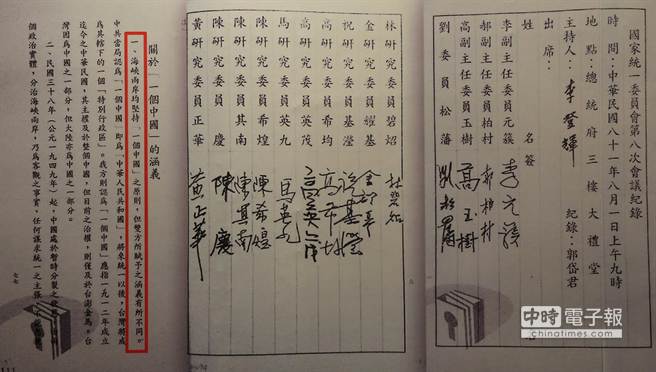 國家統一委員會第八次會議紀錄
時間：中華民國八十一年八月一日上午九時
地點：總統府三樓大禮堂
主持人：李登輝 紀錄：郭岱君
出席：
姓名 簽名
李副主任委員元簇 李元簇
郝副主任委員柏村 郝柏村
高副主任委員玉樹 高玉樹
劉委員松藩 劉松藩
林研究委員碧炤 林碧炤
金研究委員耀基 金耀基
祝研究委員基瀅 祝基瀅
高研究委員希均 高希均
高研究委員英茂 高英茂
馬研究委員英九 馬英九
陳研究委員希煌 陳希煌
陳研究委員其南 陳其南
陳研究委員慶 陳慶
黃研究委員正華 黃正華
關於「一個中國」的涵義
一、海峽兩岸均堅持「一個中國」之原則，但雙方所賦予之涵義有所不同。
中共當局認為「一個中國」即為「中華人民共和國」，將來統一以後，台灣將成
為其轄下的一個「特別行政區」。我方則認為「一個中國」應指一九一二年成立
迄今之中華民國，其主權及於整個中國，但目前之治權，則僅及於台澎金馬。台
灣固為中國之一部分，但大陸亦為中國之一部分。
二、民國三十八年（公元一九四九年）起，中國處於暫時分裂之
個政治實體，分治海峽兩岸，乃為客觀之事實，任何謀求統一之主張
七七
中時電子報
chinatimes.com